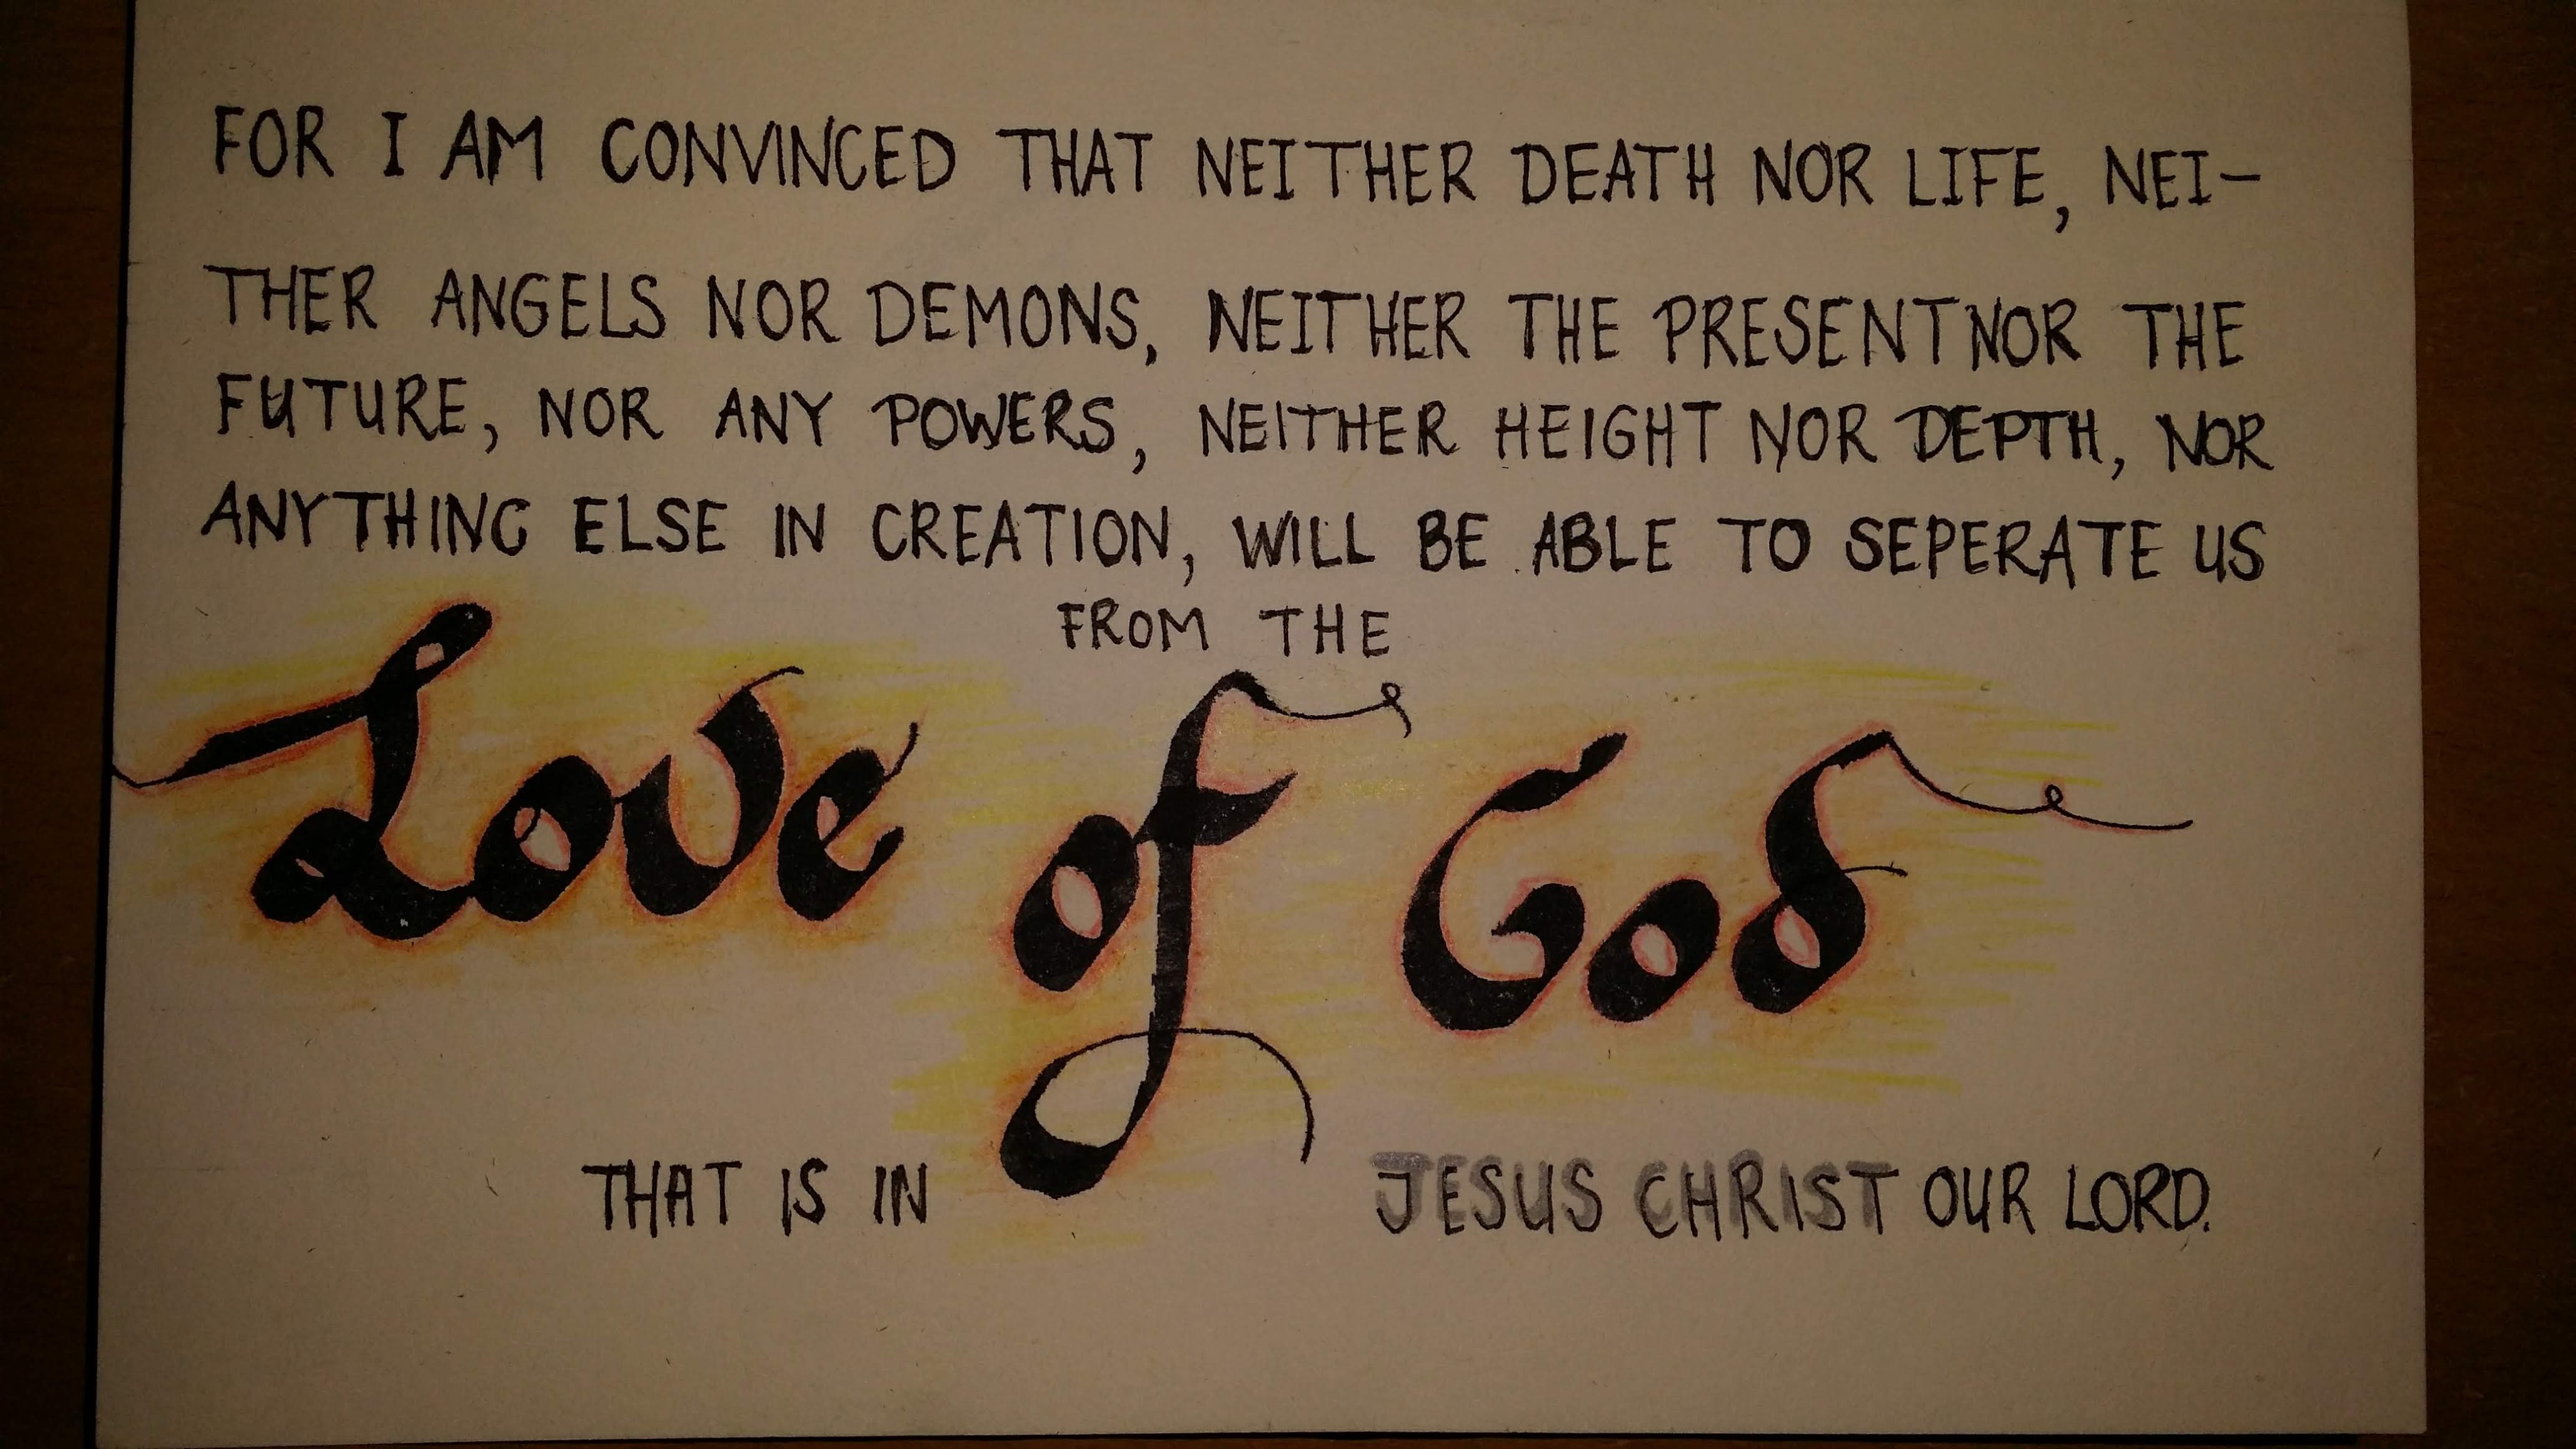 FOR I AM CONVINCED THAT NEITHER DEATH NOR LIFE, NEI-
THER ANGELS NOR DEMONS, NEITHER THE PRESENT NOR THE
FUTURE, NOR ANY POWERS, NEITHER HEIGHT NOR DEPTH, NOR
ANYTHING ELSE IN CREATION, WILL BE ABLE TO SEPERATE US
FROM THE
Love of God
THAT IS IN JESUS CHRIST OUR LORD.